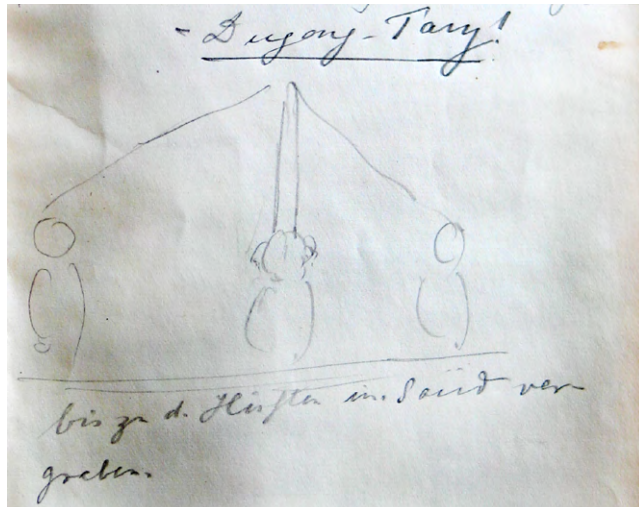 - Dugong-Tanz!
bis zu d. Hüften im Sand ver-
graben.